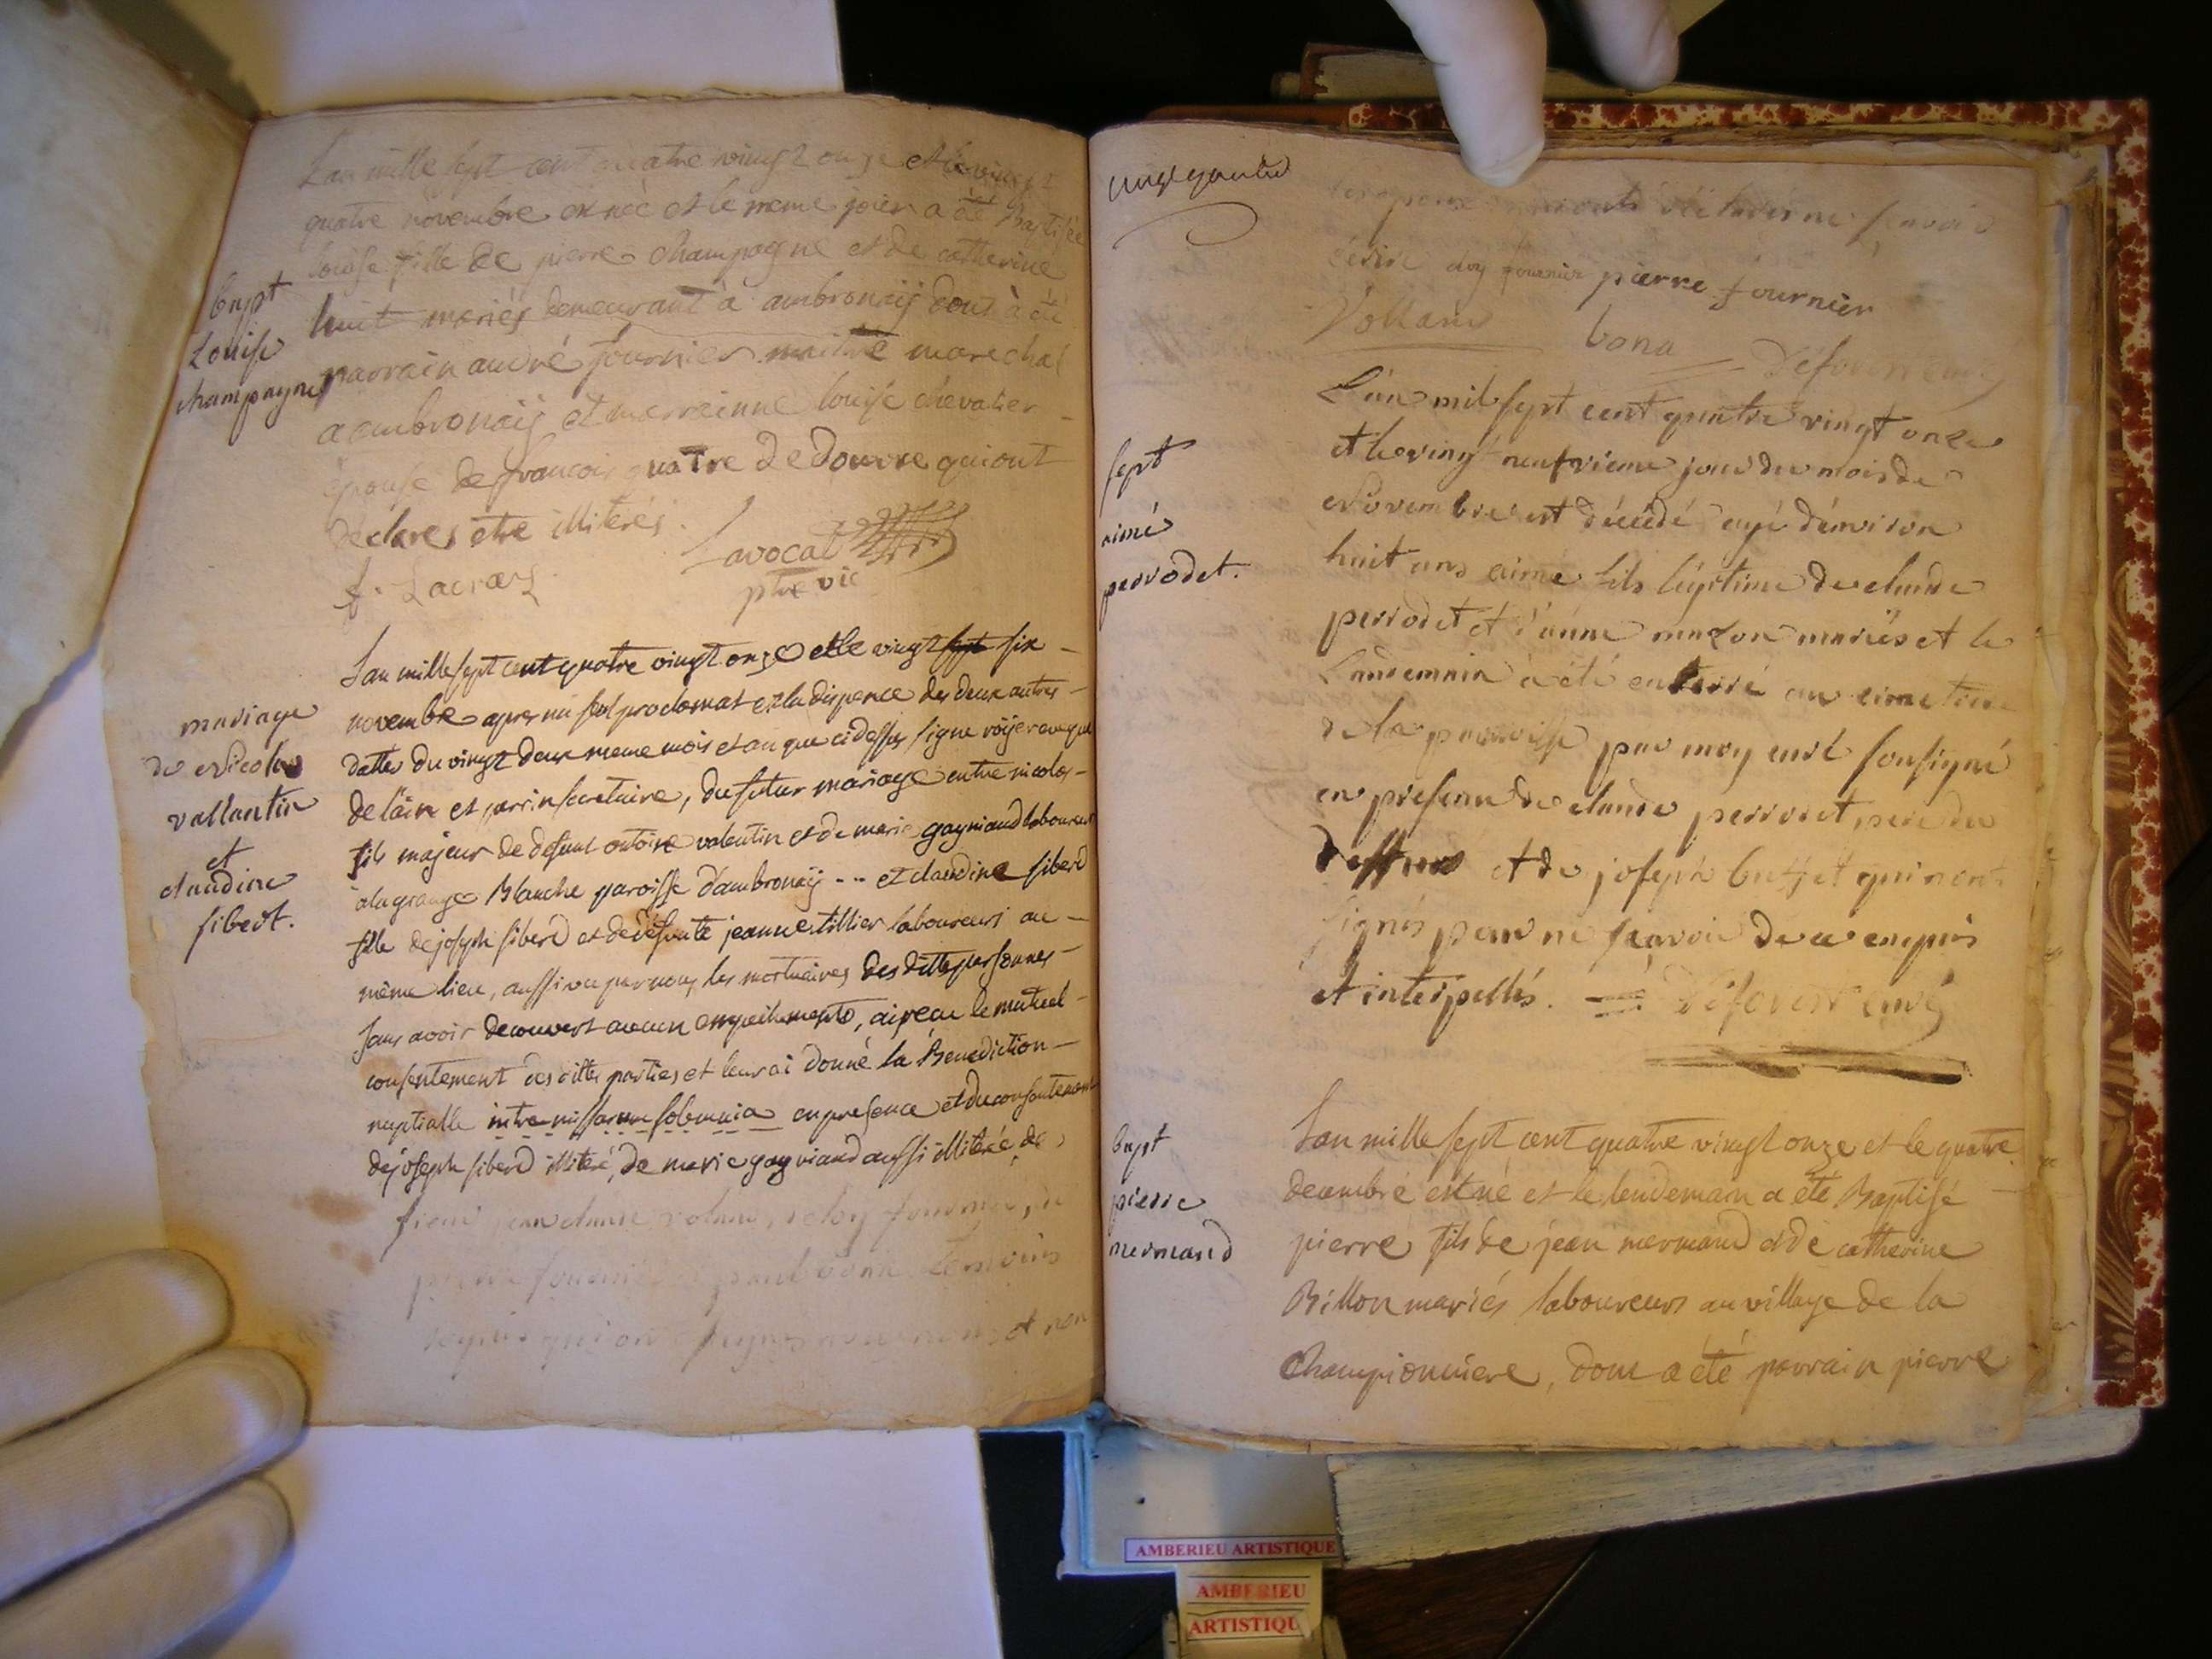 L'an mille sept cent quatre vingt onze et le vingt
quatre novembre est née et le meme jour a été Baptisée
louise fille de pierre champagne et de catterine
huit mariés demeurant à ambronaÿ dont à été
parrain andré fournier maitre marechal
a ambronaÿ et marreinne louise chevalier
épouse de francois quatre de douvre qui ont
déclarés etre illiterés.
Lavocat
f. Lacraz
ptre vic
bapt
Louise
champagne
L'an mille sept cent quatre vingt onze et le vingt sept six
novembre apres un seul proclamat et la dispence des deux autres
dattée du vingt deux meme mois et an que cidessus signe röyer eveque
de l'ain et secretaire, du futur mariage entre nicolas
fils majeur de defunt antoine valentin et de marie gagniand laboureurs
à la grange Blanche paroisse d'ambronaÿ -- et claudine siberd
fille de joseph siberd et de défunte jeanne tillier laboureurs au
même lieu, aussi vu par nous les mortuaires des dittes personnes
sans avoir decouvert aucun empechements, ai recu le mutuel
consentement des dittes parties et leur ai donné la Benediction
nuptialle intra missarum solemnia en presence et du consentement
de joseph siberd illiteré, de marie gagniand aussi illiterée, de
sieur jean claude voland, d'eloy fournier, de
pierre fournier témoins
requis qui ont signés et non
mariage
de Nicolas
vallantin
et
claudine
sibert.
les epoux savoir
écrire eloy fournier pierre fournier
Volland bona Déforest curé
L'an mil sept cent quatre vingt onze
et le vingt neufvieme jour du mois de
Novembre est décédé agé d'environ
huit ans aimé fils légitime de claude
perrodet et d'anne mazon mariés et le
Landemain à été enterré au cimetiere
de la parroisse par moy curé soussigné
en presence de claude perrodet, pere du
deffunt et de joseph qui n'ont
signés pour ne sçavoir de ce enquis
et interpellés. Déforest curé
sept
aimé
perrodet.
L'an mille sept cent quatre vingt onze et le quatre
decembre est né et le lendemain a été Baptisé
pierre fils de jean mermand et de catherine
Billon mariés laboureurs au village de la
Championniere, dont a été parrain pierre
bapt
pierre
mermand
AMBERIEU ARTISTIQUE
AMBERIEU
ARTISTIQU